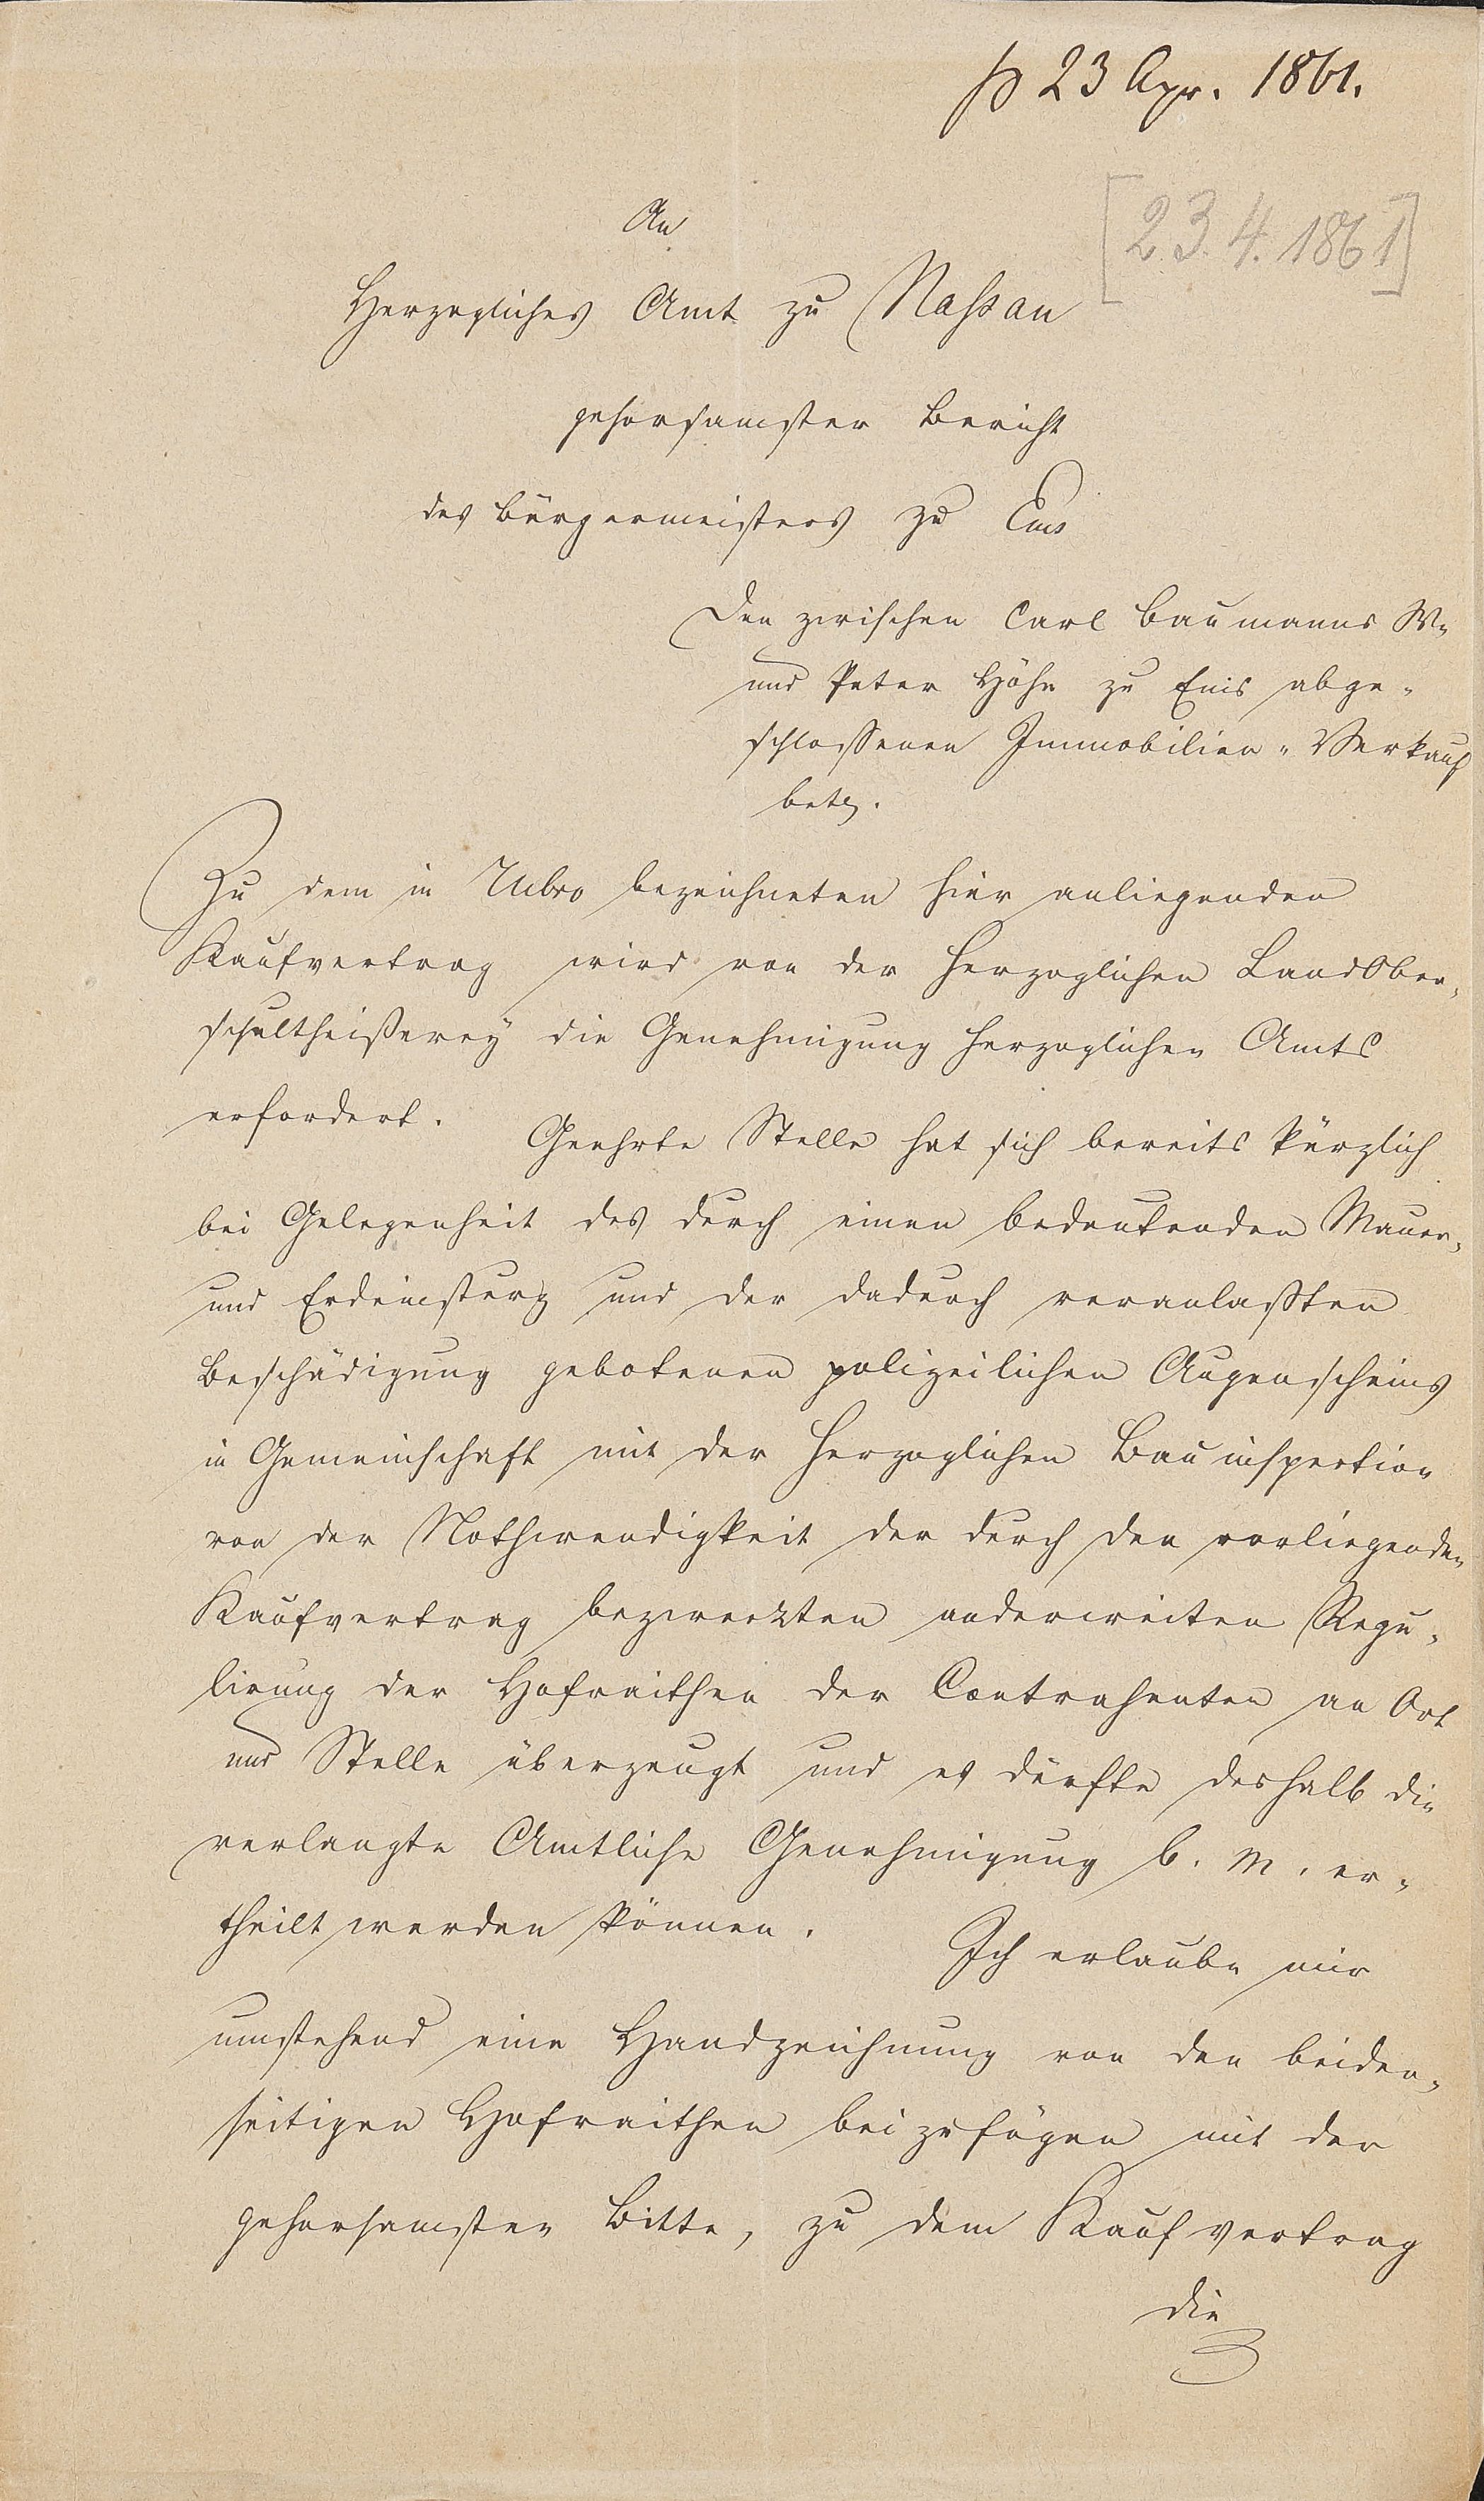 23 Apr. 1861.
[23.4.1861]
An
Herzogliches Amt zu Nassau
gehorsamster Bericht
des Bürgermeisters zu Ems
Den zwischen Carl Baumanns We
und Peter Höhn zu Ems abge-
schlossenen Immobilien-Verkauf
betr.
Zu dem in Rubro bezeichneten hier anliegenden
Kaufvertrag wird von der Herzoglichen LandOber-
schultheißerey die Genehmigung Herzoglichen Amts
erfordert.
Geehrte Stelle hat sich bereits kürzlich
bei Gelegenheit des durch einen bedeutenden Mauer-
und Erdeinsturz und der dadurch veranlaßten
Beschädigung gebotenen polizeilichen Augenscheins
in Gemeinschaft mit der Herzoglichen Bauinspection
von der Nothwendigkeit der durch den vorliegenden
Kaufvertrag bezweckten anderweiten Regu-
lirung der Hofraithen der Contrahenten an Ort
und Stelle überzeugt und es dürfte deshalb die
verlangte Amtliche Genehmigung b. m. er-
theilt werden können.
Ich erlaube mir
umstehend eine Handzeichnung von den beider-
seitigen Hofraithen beizufügen mit der
gehorsamsten Bitte, zu dem Kaufvertrag
die